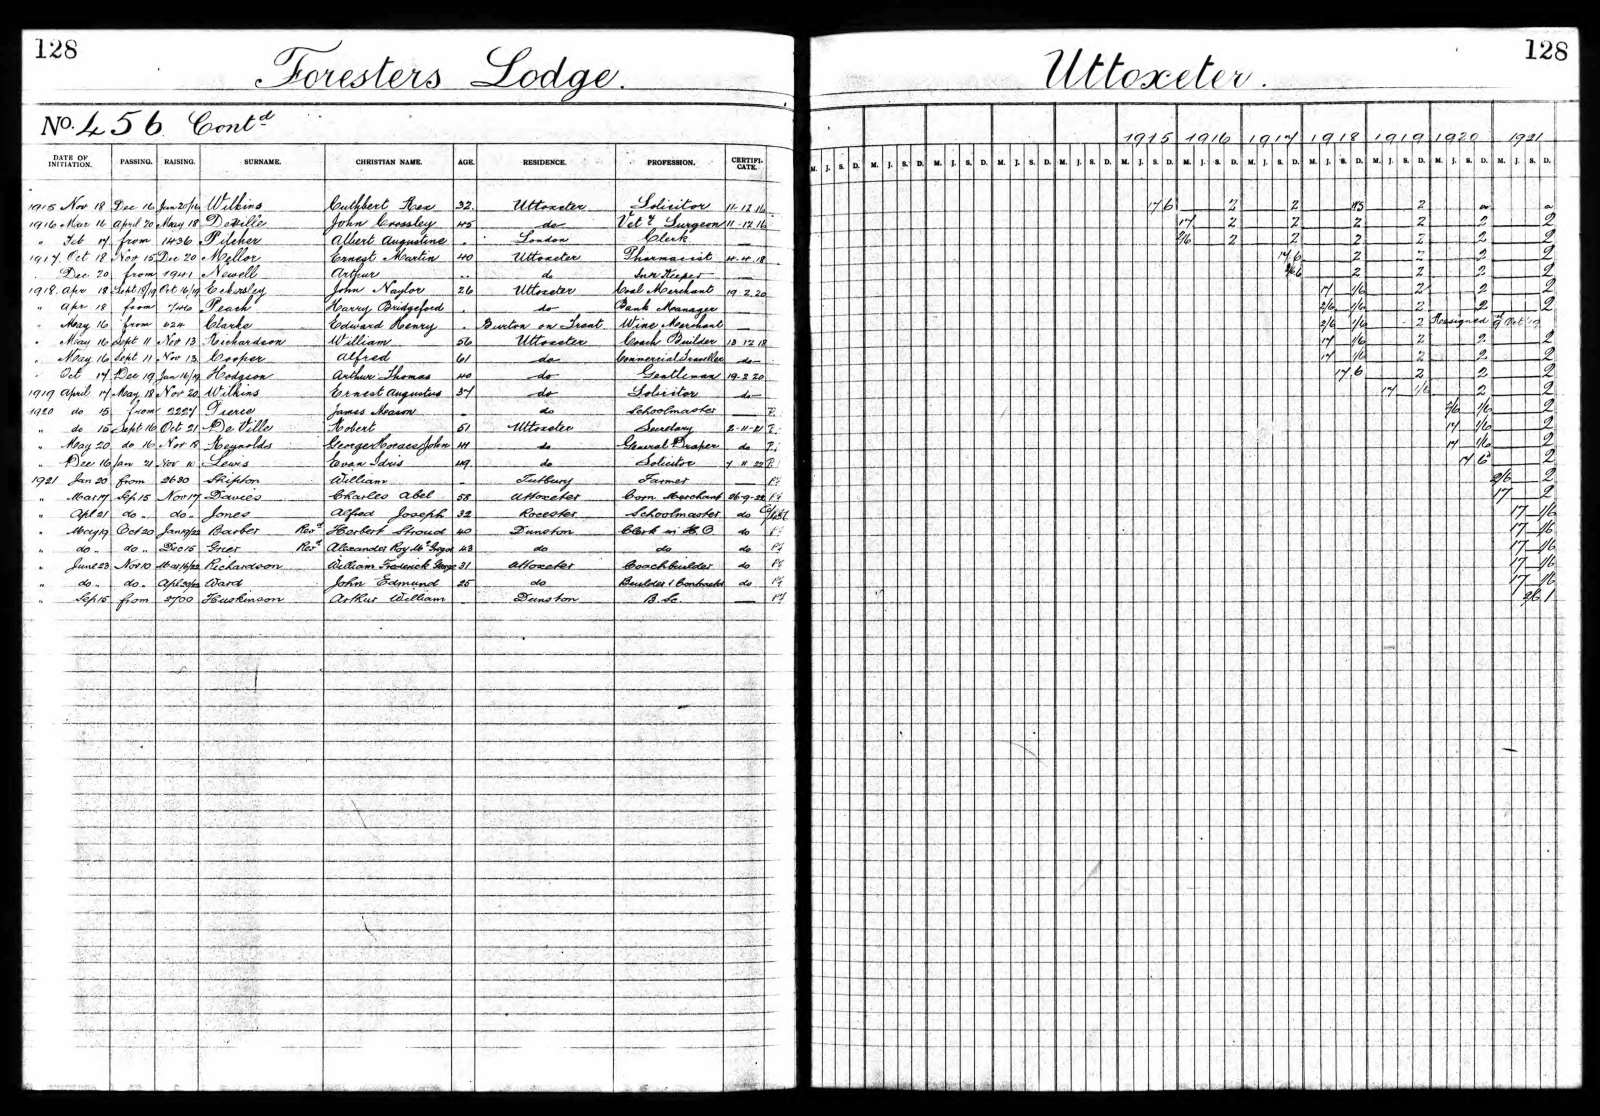 128
Foresters Lodge.
No. 456 Contd
DATE OF INITIATION. PASSING. RAISING. SURNAME. CHRISTIAN NAME. AGE. RESIDENCE. PROFESSION. CERTIFICATE.
1915 Nov 18 Dec 16 Jan 20/16 Wilkins Cuthbert Rex 32. Uttoxeter Solicitor 11-12 16
1916 Mar 16 April 20 May 18 DeVille John Crossley 45 do Vety Surgeon 11-12 16
" Feb 17 from 1436 Pilcher Albert Augustine . London Clerk —
1917 Oct 18 Nov 15 Dec 20 Mellor Ernest Martin 40 Uttoxeter Pharmacist 4.4.18
Dec 20 from 1941 Newell Arthur .. do Inn Keeper —
1918 Apr 18 Sept 18/19 Oct 16/19 Eckersley John Naylor 26 Uttoxeter Coal Merchant 19 2.20
" Apr 18 from 1746 Peach Harry Bridgeford . do Bank Manager —
" May 16 from 624 Clarke Edward Henry . Burton on Trent Wine Merchant —
" May 16 Sept 11 Nov 13 Richardson William 56 Uttoxeter Coach Builder 13 12 18
" May 16 Sept 11 Nov 13 Cooper Alfred 61 do Commercial Traveller do
" Oct 17 Dec 19 Jan 16/19 Hodgson Arthur Thomas 40 do Gentleman 19.2 20
1919 April 17 May 18 Nov 20 Wilkins Ernest Augustus 37 do Solicitor do
1920 do 15 from 2227 Pierce James Neason - do Schoolmaster —
" do 15 Sept 16 Oct 21 De Ville Robert 51 Uttoxeter Secretary 2-11-21
" May 20 do 16 Nov 18 Reynolds George Horace John 41 do General Draper do
" Dec 16 Jan 21 Nov 10 Lewis Evan Idris 49. do Solicitor 7 11 22
1921 Jan 20 from 2630 Skipton William - Tutbury Farmer —
" Mar 17 Sep 15 Nov 17 Davies Charles Abel 58 Uttoxeter Corn Merchant 26-9-22
" Apl 21 do. do. Jones Alfred Joseph 32 Rocester Schoolmaster do
" May 19 Oct 20 Jan 19/22 Barber Revd Herbert Stroud 40 Dunston Clerk in H.O do
" do - do .. Dec 15 Grier Revd Alexander Roy McGregor 43 do do do
" June 23 Nov 10 Mar 16/22 Richardson William Frederick George 31 Uttoxeter Coachbuilder do
" do. do. Apl 20/22 Ward John Edmund 25 do Builder & Contractor do
" Sep 15 from 2700 Huskinson Arthur William - Dunston B.Sc. —
128
Uttoxeter.
1915 1916 1917 1918 1919 1920 1921
M. J. S. D. M. J. S. D. M. J. S. D. M. J. S. D. M. J. S. D. M. J. S. D. M. J. S. D. M. J. S. D. M. J. S. D. M. J. S. D. M. J. S. D. M. J. S. D.
17 6 2 2 2
17 2 2 2 2 2 2
2/6 2 2 2 2 2 2
17 6 2 2 2 2
2/6 2 2 2 2
17 1/6 2 2 2
2/6 1/6 2 2 2
2/6 1/6 2 Resigned 9th Oct 19
17 1/6 2 2 2
17 1/6 2 2 2
17 6 2 2 2
17 1/6 2 2
2/6 1/6 2
17 1/6 2
17 1/6 2
17 6 2
2/6 2
17 2
17 1/6
17 1/6
17 1/6
17 1/6
17 1/6
2/6 1